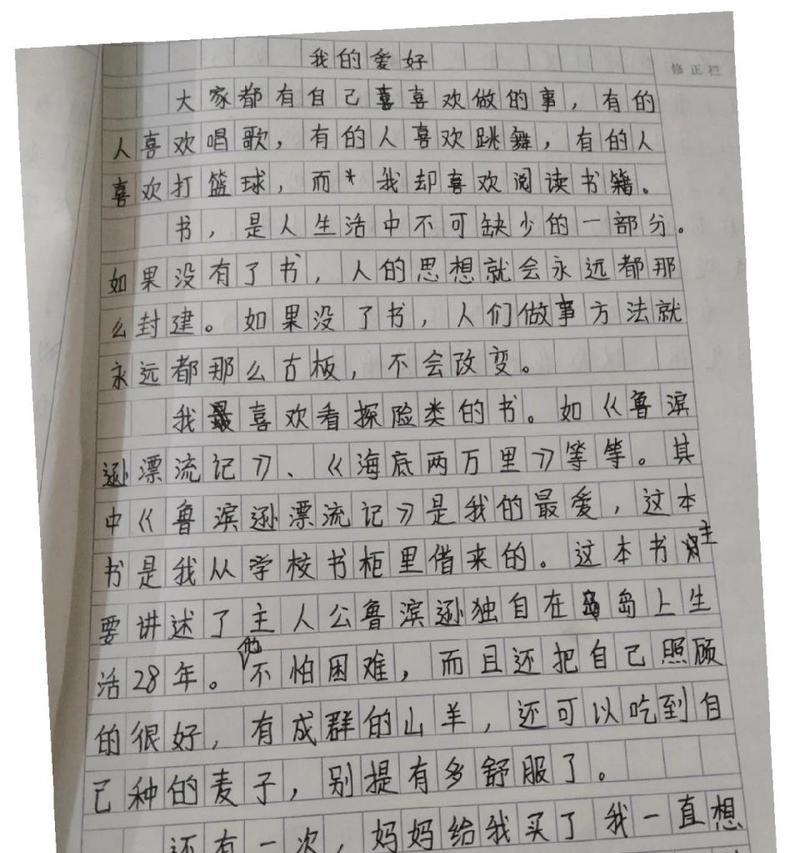 我的爱好
修正栏
大家都有自己喜喜欢做的事，有的
人喜欢唱歌，有的人喜欢跳舞，有的人
喜欢打篮球，而我却喜欢阅读书籍。
书，是人生活中不可缺少的一部分。
如果没有了书，人的思想就会永远都那
么封建。如果没了书，人们做事方法就
永远都那么古板，不会改变。
我最喜欢看探险类的书。如《鲁滨
逊漂流记》、《海底两万里》等等。其
中《鲁滨逊漂流记》是我的最爱，这本
书是我从学校书柜里借来的。这本书主
要讲述了主人公鲁滨逊独自在岛上生
活28年。他不怕困难，而且还把自己照顾
的很好，有成群的山羊，还可以吃到自
己种的麦子，别提有多舒服了。
还有一次，妈妈给我买了我一直想